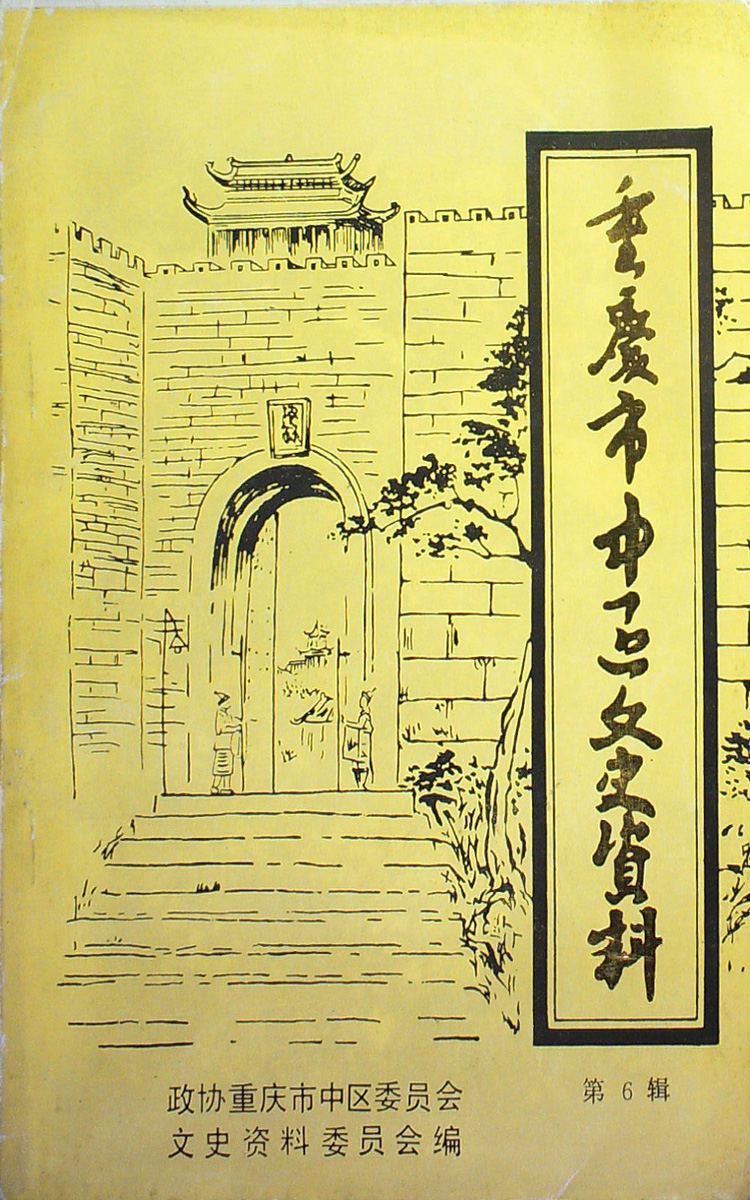 重慶市中区文史資料
政协重庆市中区委员会
文史资料委员会编
第6辑